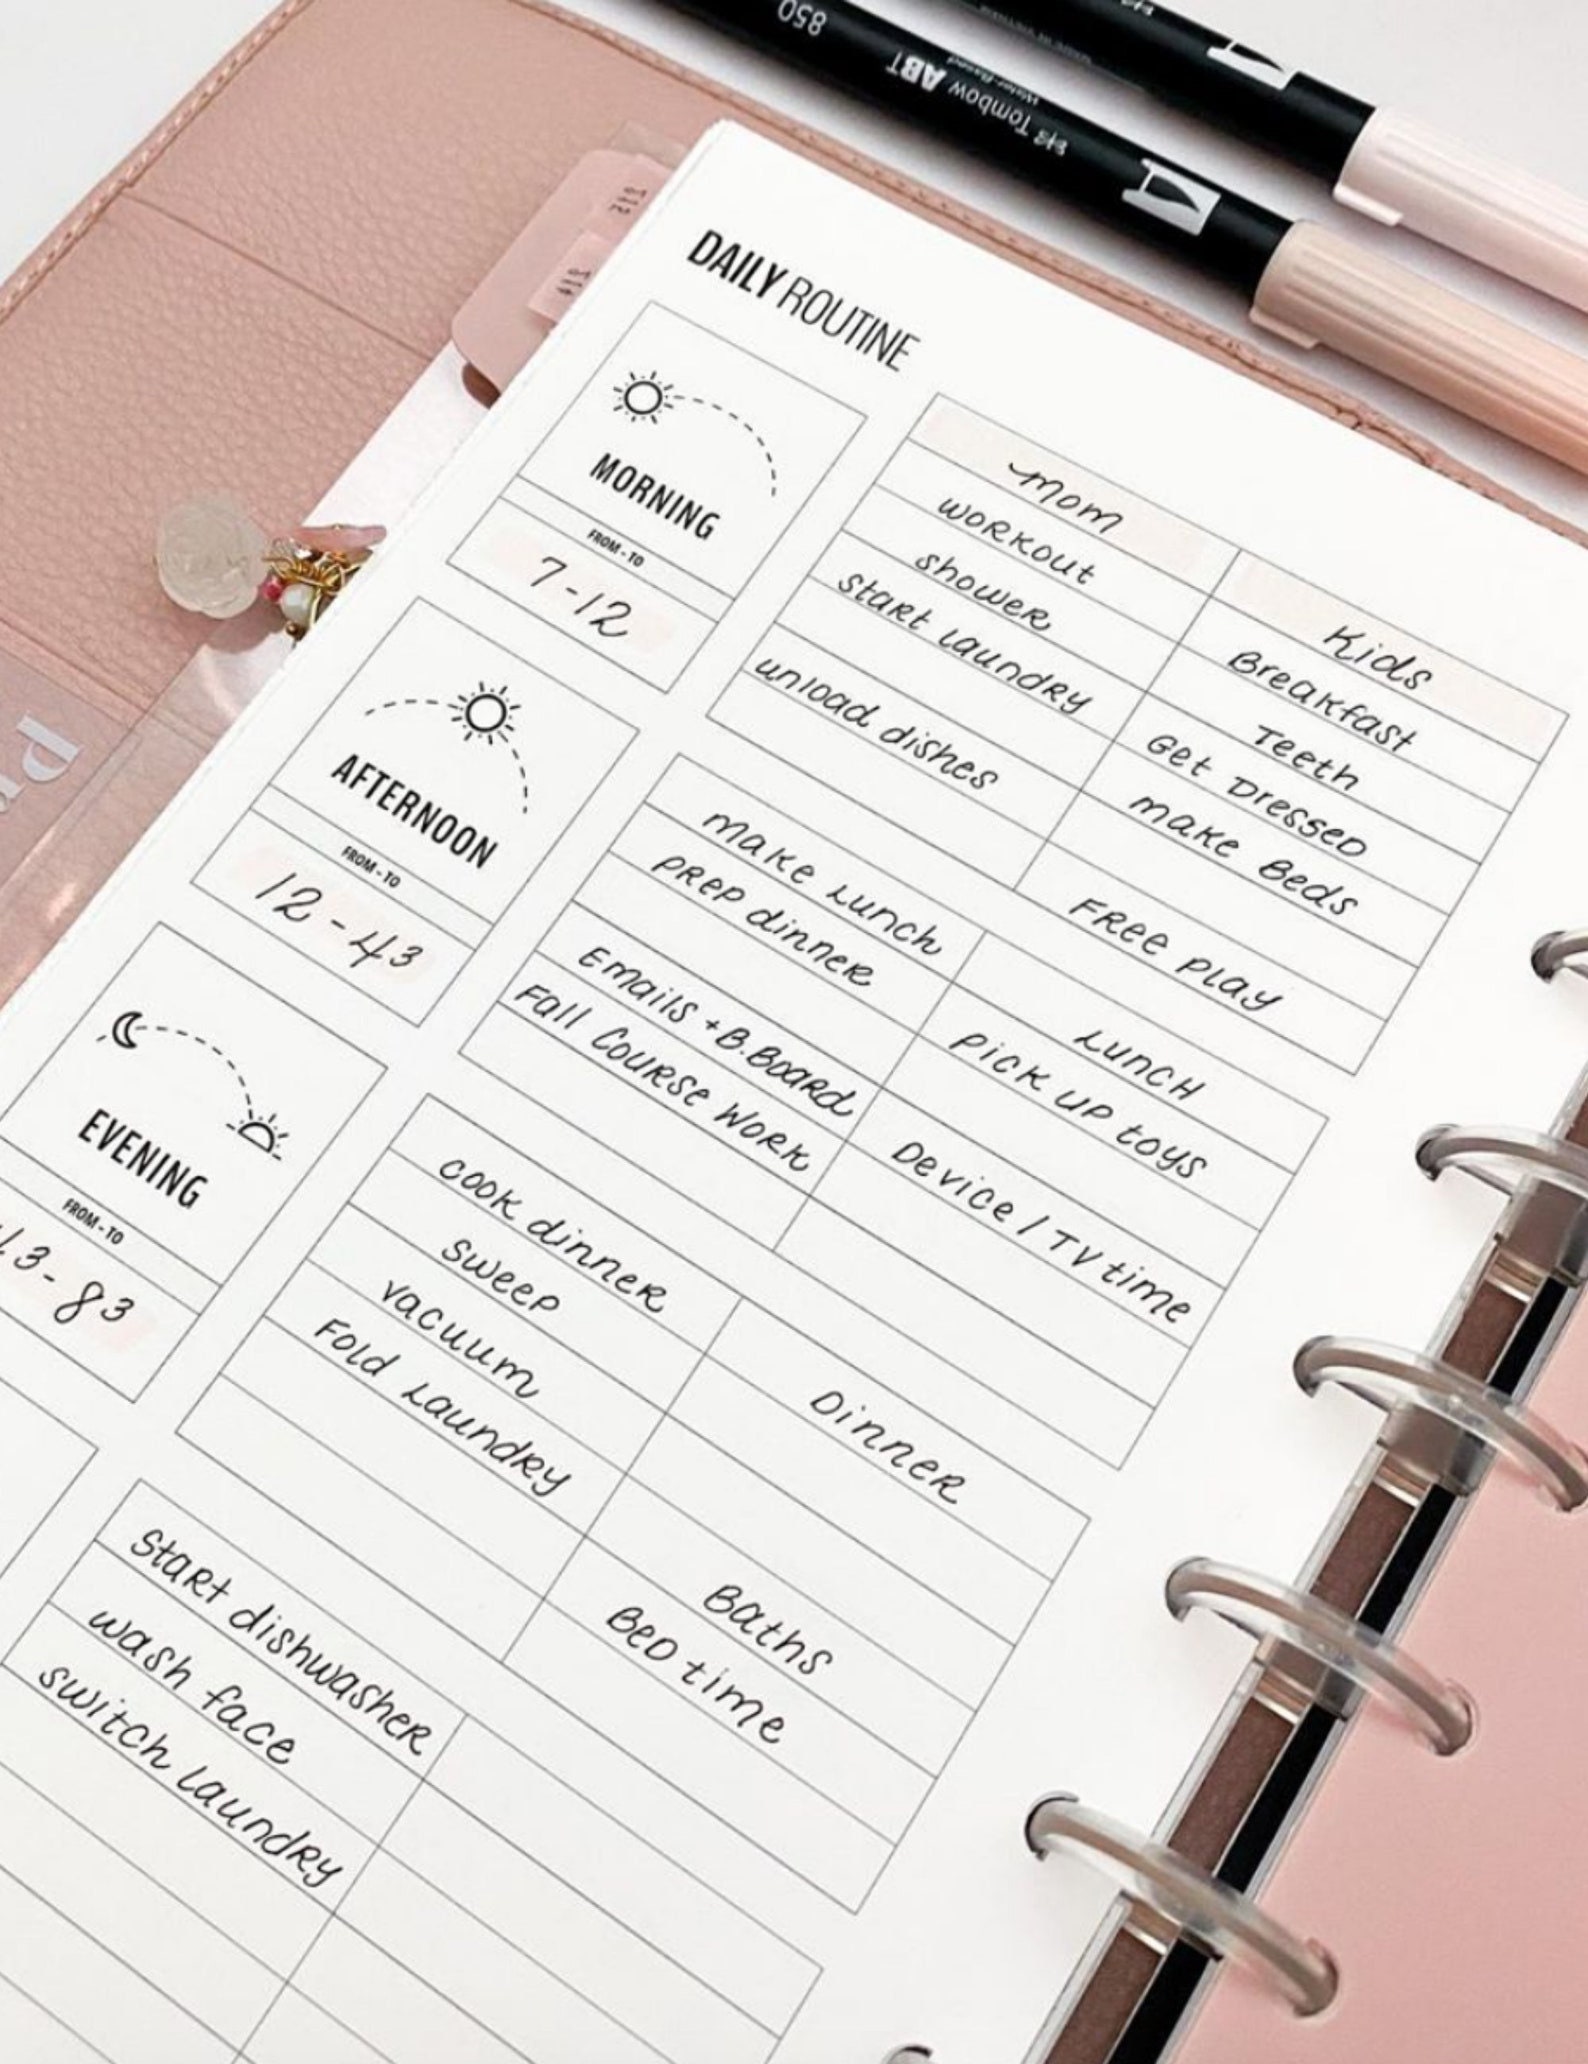 850
Tombow ABT
Water-Based
DAILY ROUTINE
MORNING
FROM - TO
7-12
Mom
WORKOUT
SHOWER
START LAUNDRY
UNLOAD DISHES
Kids
Breakfast
Teeth
Get Dressed
Make Beds
FREE PLAY
AFTERNOON
FROM - TO
12-43
Make Lunch
PREP dinner
Emails + B.Board
Fall Course Work
LUNCH
PICK UP toys
Device / TV time
EVENING
FROM - TO
43-83
COOK dinner
Sweep
Vacuum
Fold Laundry
Dinner
Baths
BED time
Start dishwasher
wash face
switch Laundry